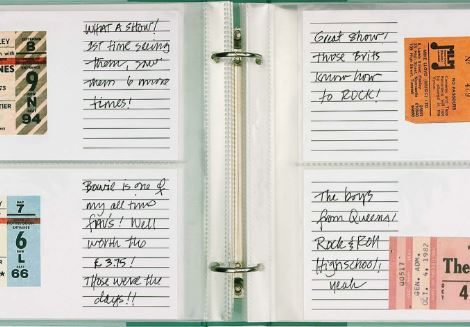 LEY
SEPTEMBER
8
with
NES
TIER
9
N
94
WHAT A SHOW!
1ST time seeing
them, saw
them 6 more
times!
Great show!
those Brits
know how
to ROCK!
MLM
MAY
7
6
L
66
Bowie is one of
my all time
FAV'S! Well
worth the
£ 3.75!
Those were the
days!!
The boys
from Queens!
Rock & Roll
Highschool!
yeah
00517
GEN. ADM.
OCT 4, 1982
The
OCT
4